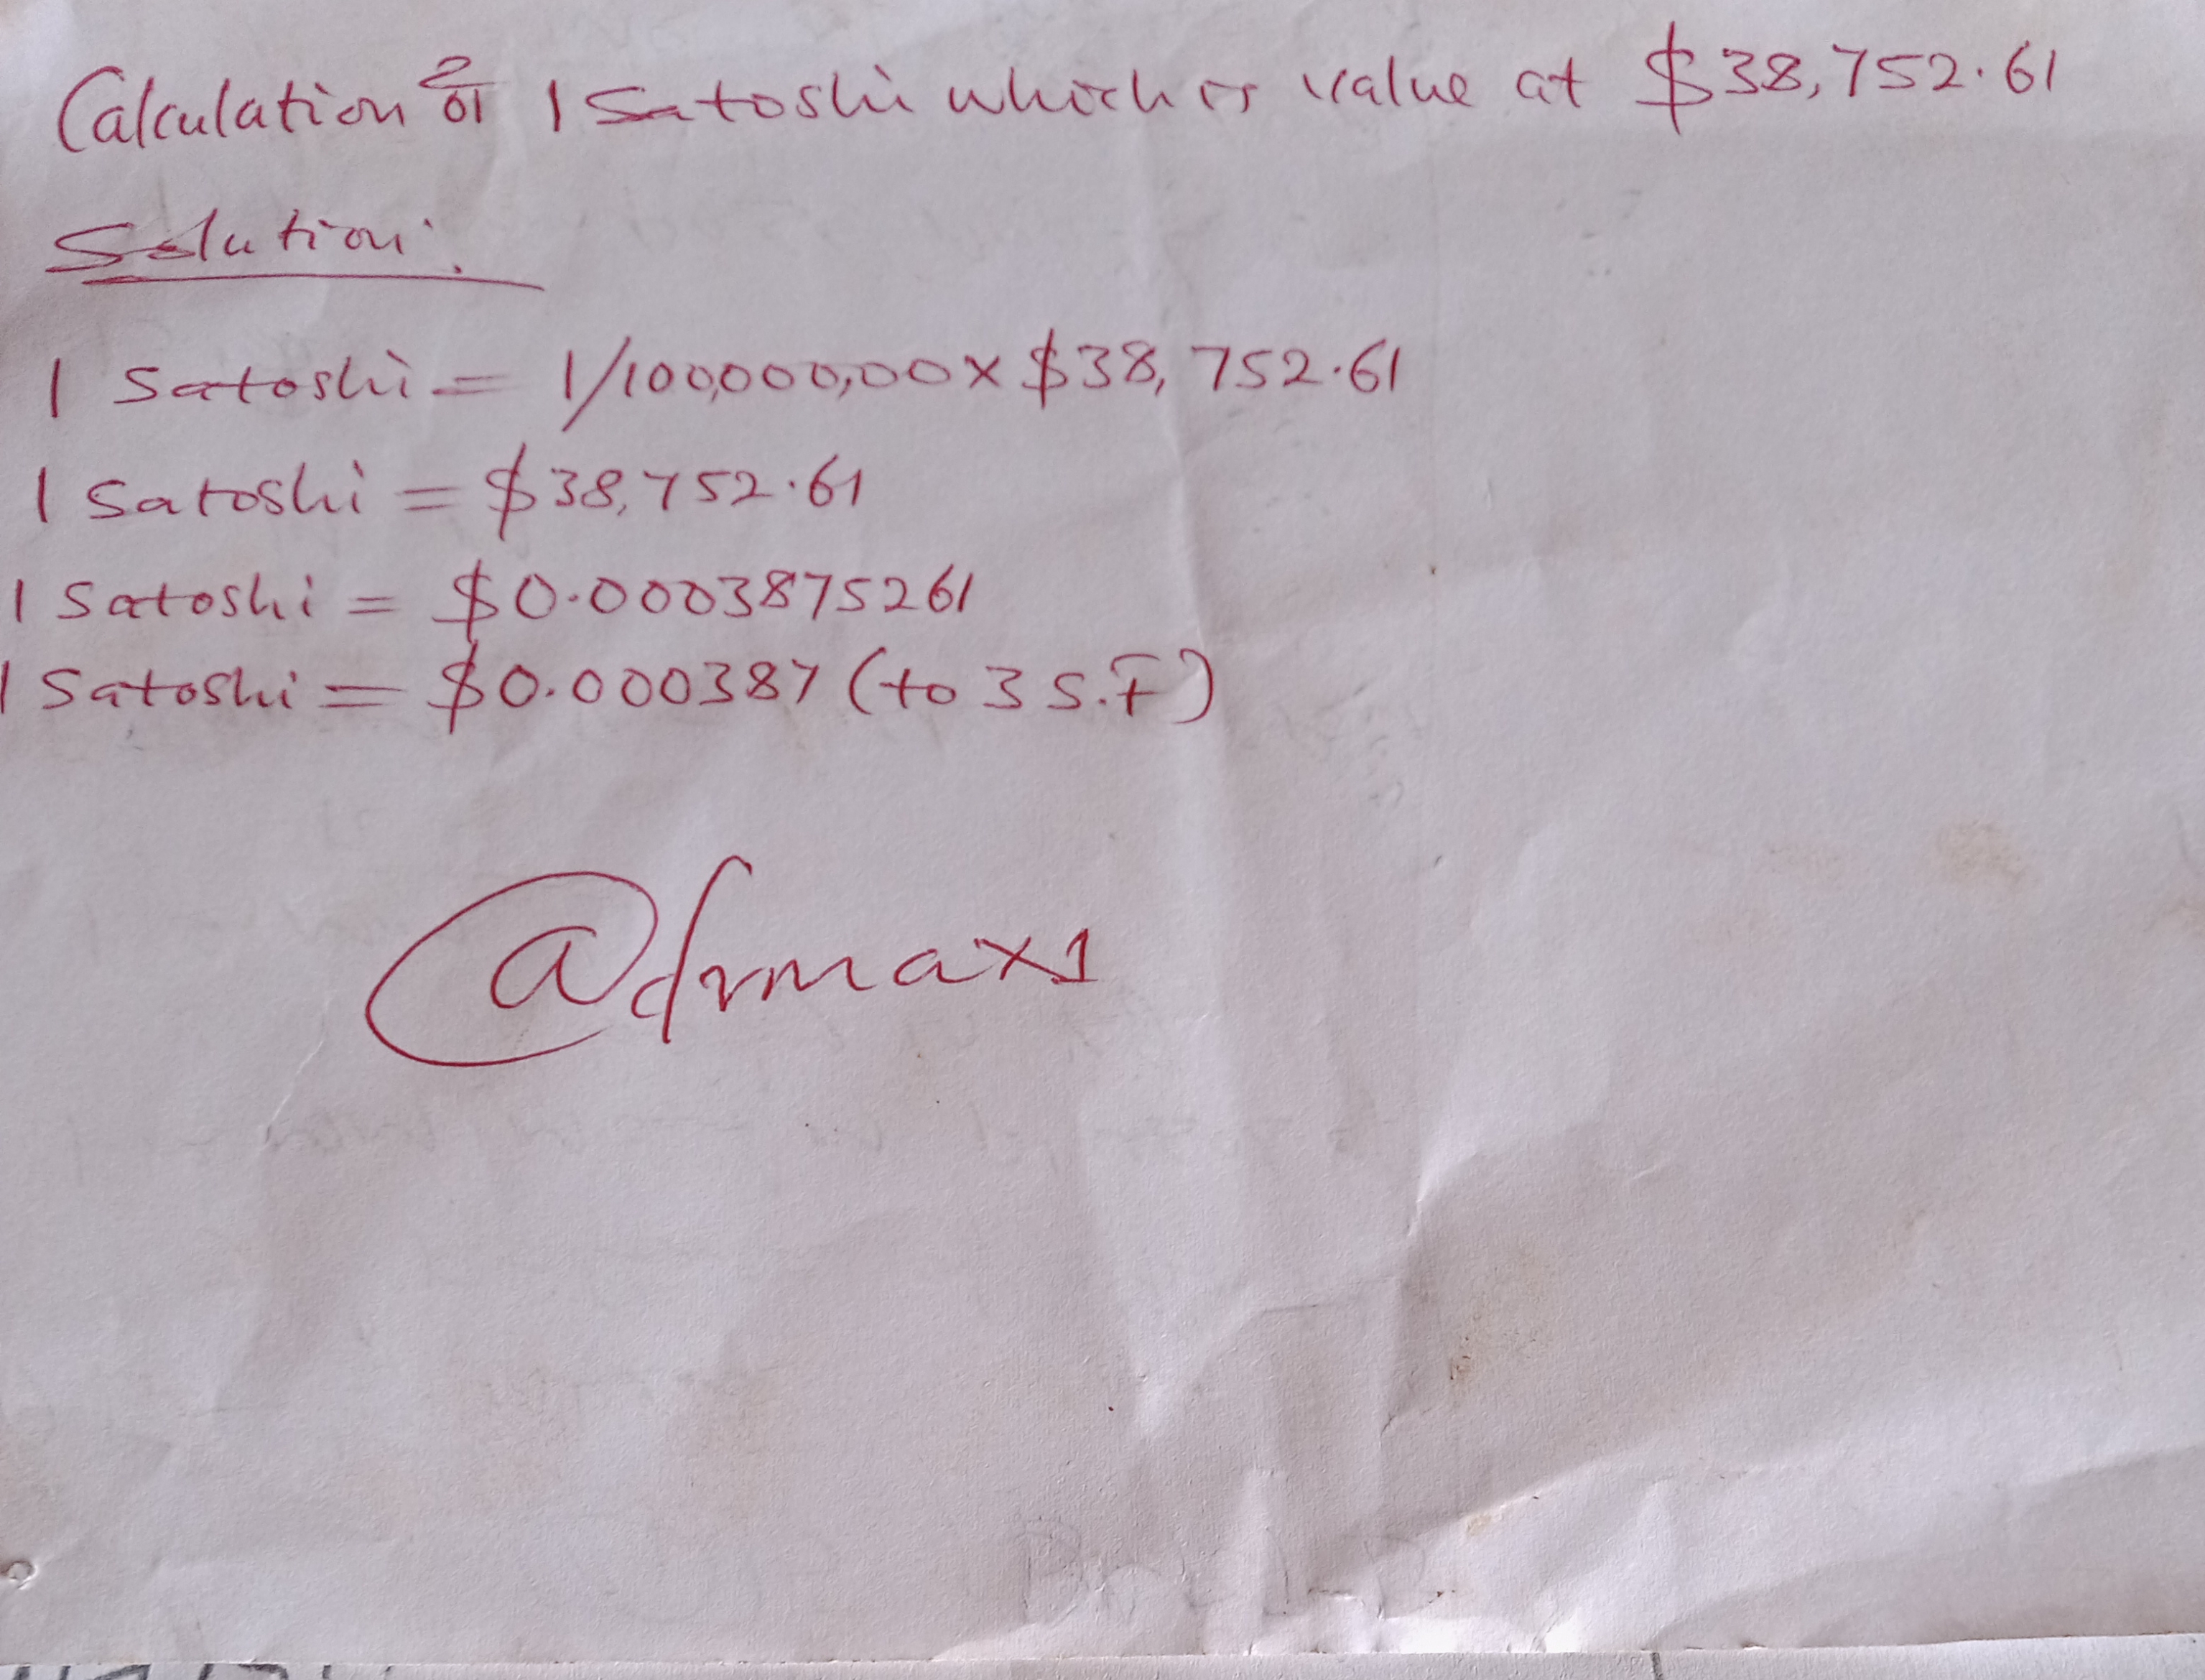 Calculation of 1 Satoshi which is value at $38,752.61
Solution:
1 Satoshi = 1/100,000,00 x $38,752.61
1 Satoshi = $38,752.61
1 Satoshi = $0.0003875261
1 Satoshi = $0.000387 (to 3 S.F)
@drmax1